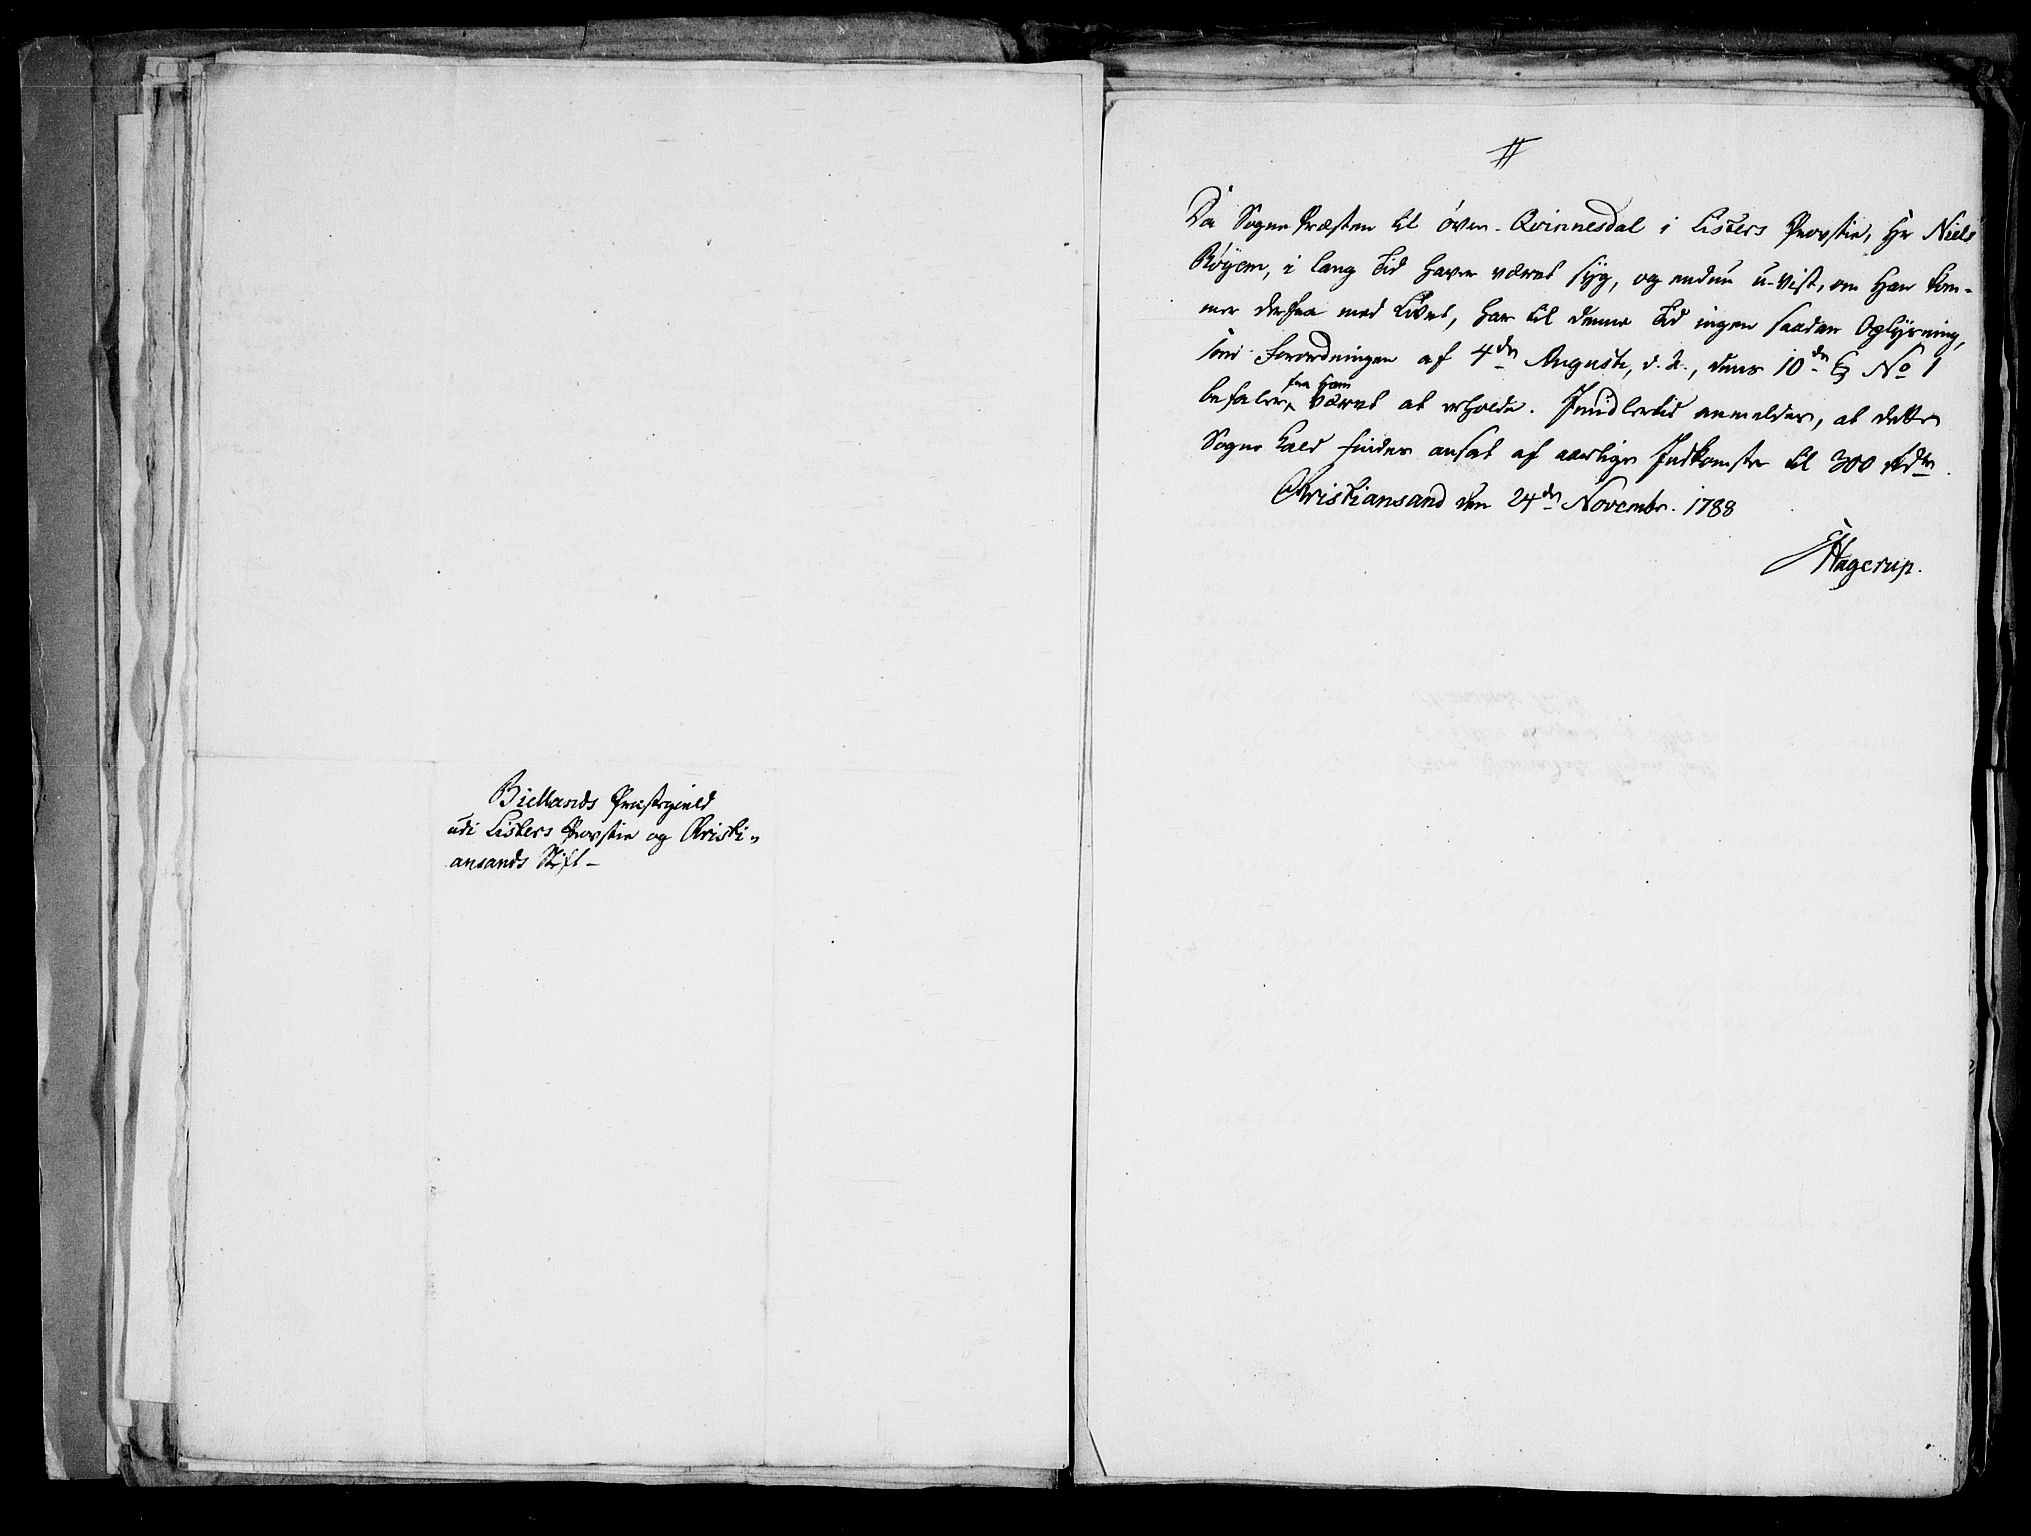 Biellands Præstegield
udi Listers Provstie og Christi-
ansands Stift -
Da Sogne Præsten til Öven-Qvinnesdal i Listers Provstie, Hr Niels
Röyem, i lang Tid haver været syg, og endnu u-vist, om Han kom-
mer derfra med Livet, har til denne Tid ingen saadan Oplysning,
som Forordningen af 4de Augusti, d. A., dens 10de § No 1
befaler, fra Ham været at erholde. Imidlertid anmeldes, at dette
Sogne Kald findes ansat af aarlige Indkomster til 300 Rdr.
Christiansand den 24de Novembr. 1788
Hagerup.